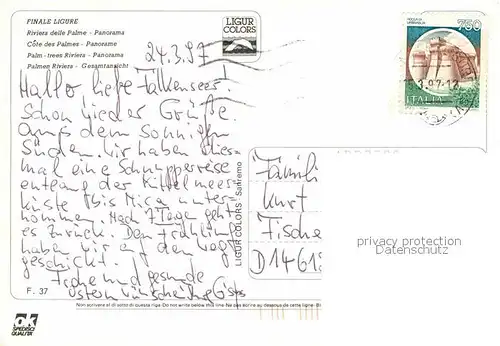 FINALE LIGURE
Riviera delle Palme - Panorama
Côte des Palmes - Panorame
Palm-trees Riviera - Panorama
Palmen Riviera - Gesamtansicht
LIGUR
COLORS
750
ITALIA
24.3.97
Hallo, liebe Falkenseer!
Schon wieder Grüße
aus dem sonnigen
Süden. Wir haben dies-
mal eine Schnupperreise
entlang der Mittelmeer-
küste bis Nizza unter-
nommen. Nach 7 Tagen geht
es zurück. Den Frühling
haben wir auf den Weg
geschickt.
Frohe und gesunde
Ostern wünschen
Famili
Kurt
Fische
D 1461
privacy protection
Datenschutz
LIGUR COLORS - Sanremo
F. 37
Non scrivere al di sotto di questa riga - Do not write below this line - Ne pas écrire au dessous de cette ligne
OK
SPEDISCI
QUALITÀ